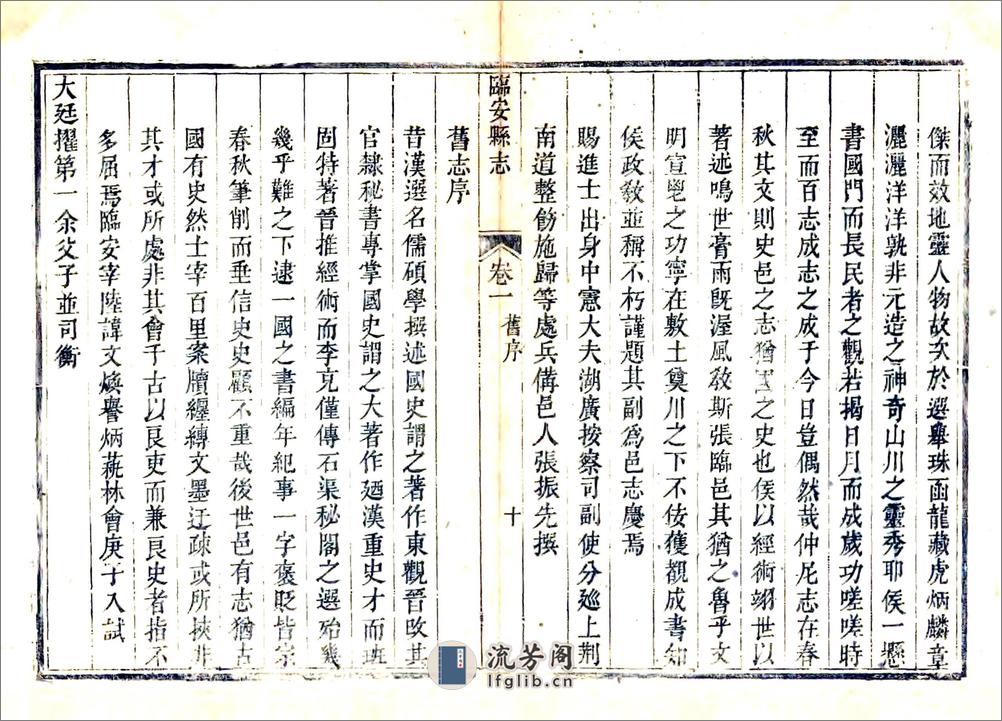 傑而效地靈人物故次於選舉珠函龍藏虎炳麟章
灑灑洋洋孰非元造之神奇山川之靈秀耶侯一懸
書國門而長民者之觀若揭日月而成歲功嗟嗟時
至而百志成志之成于今日豈偶然哉仲尼志在春
秋其文則史邑之志猶國之史也侯以經術翊世以
著述鳴世膏雨既渥風敎斯張臨邑其猶之魯乎文
明宣鬯之功寧在敷土奠川之下不佞獲覩成書知
侯政敎並稱不朽謹題其副爲邑志慶焉
賜進士出身中憲大夫湖廣按察司副使分廵上荆
南道整飭施歸等處兵備邑人張振先撰
臨安縣志 卷一 舊序 十
舊志序
昔漢選名儒碩學撰述國史謂之著作東觀晉改其
官隸秘書專掌國史謂之大著作廼漢重史才而班
固特著晉推經術而李充僅傳石渠秘閣之選殆幾
幾乎難之下逮一國之書編年紀事一字褒貶皆宗
春秋筆削而垂信史史顧不重哉後世邑有志猶古
國有史然士宰百里案牘纏縛文墨迂疎或所挾非
其才或所處非其會千古以良吏而兼良史者指不
多屈焉臨安宰陸諱文煥譽炳蓺林會庚子入試
大廷擢第一余父子並司衡
流芳阁
lfglib.cn